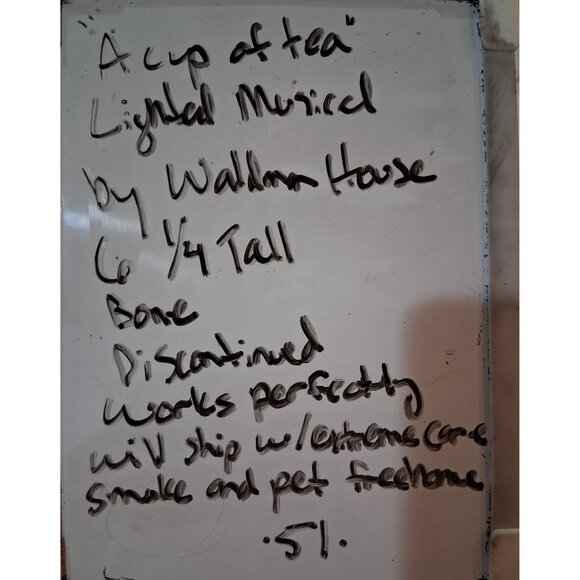 "A cup of tea"
Lighted Musical
by Waldman House
6 1/4 Tall
Bone
Discontinued
works perfectly
will ship w/extreme care
smoke and pet free home
.51.